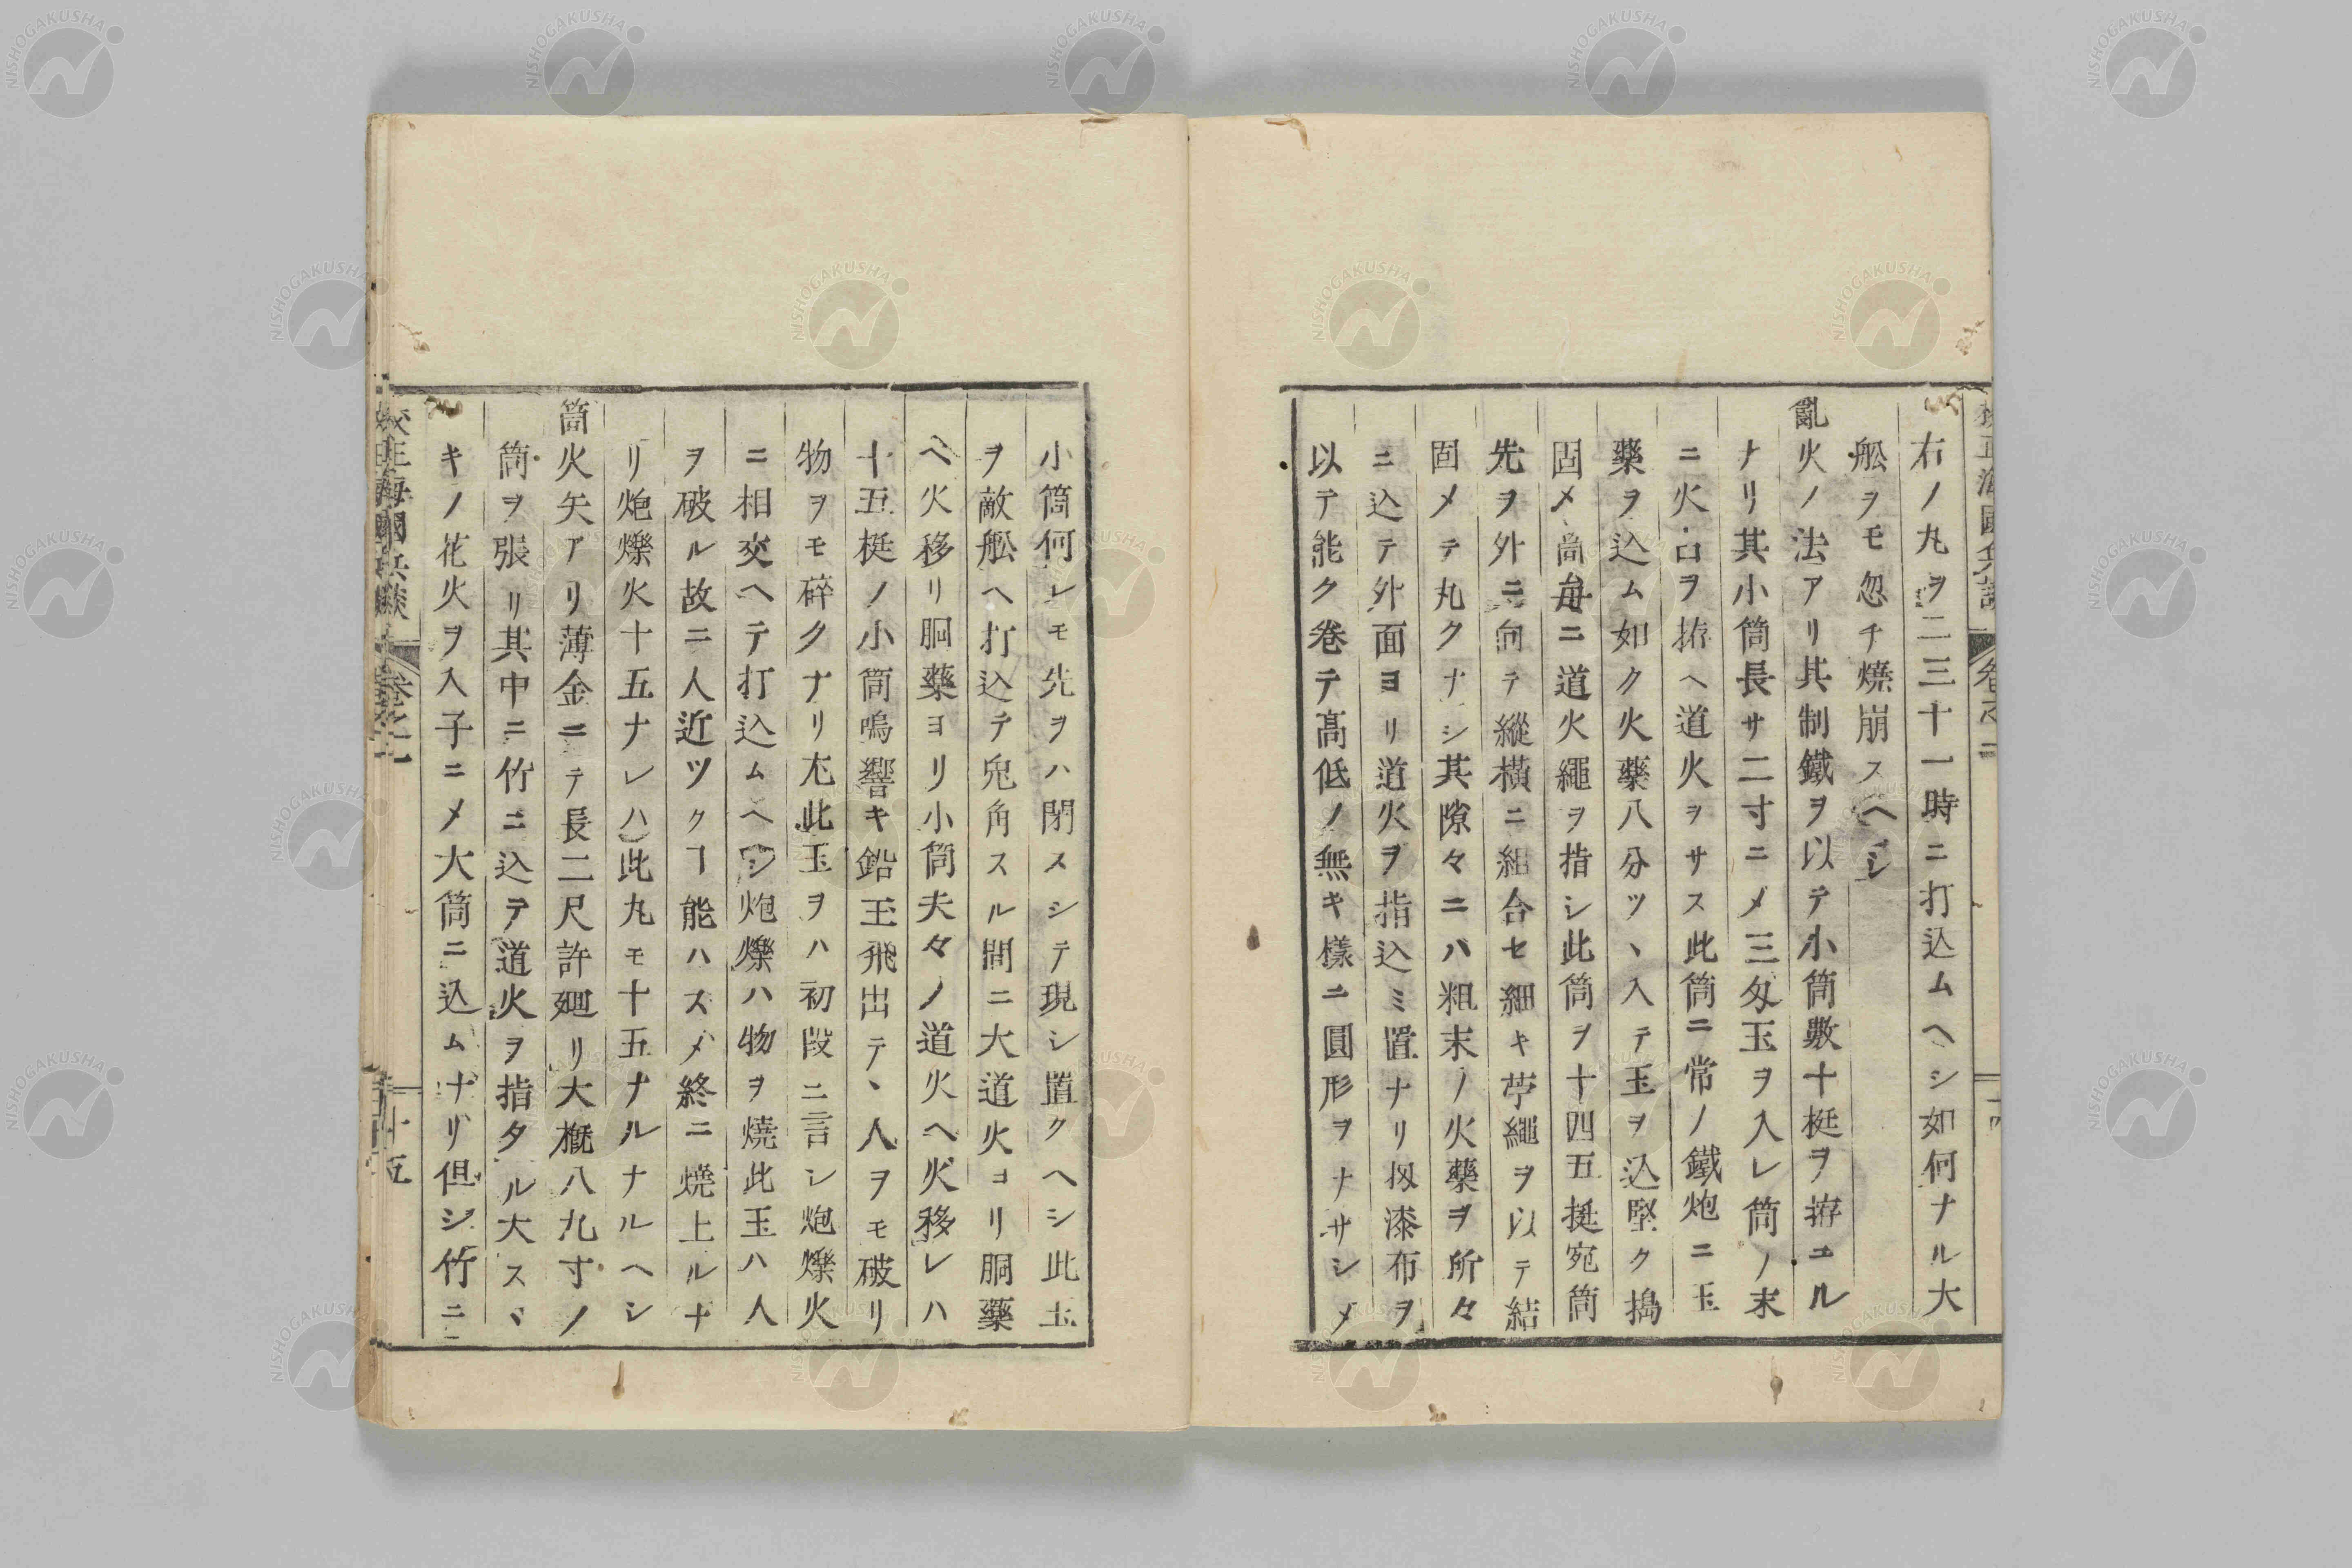 右ノ丸ヲ二三十一時ニ打込ムヘシ如何ナル大
舩ヲモ忽チ燒崩スヘシ
亂火ノ法アリ其制鐵ヲ以テ小筒數十挺ヲ拵ユル
ナリ其小筒長サ二寸ニ〆三匁玉ヲ入レ筒ノ末
ニ火口ヲ拵ヘ道火ヲサス此筒ニ常ノ鐵炮ニ玉
藥ヲ込ム如ク火藥八分ツヽ入テ玉ヲ込堅ク搗
固メ筒毎ニ道火繩ヲ指シ此筒ヲ十四五挺宛筒
先ヲ外ニ向テ縱橫ニ組合セ細キ苧繩ヲ以テ結
固メテ丸クナシ其隙々ニハ粗末ノ火藥ヲ所々
ニ込テ外面ヨリ道火ヲ指込ミ置ナリ扨漆布ヲ
以テ能ク卷テ高低ノ無キ樣ニ圓形ヲナサシメ
小筒何レモ先ヲハ閉メシテ現シ置クヘシ此玉
ヲ敵舩ヘ打込テ兎角スル間ニ大道火ヨリ胴藥
ヘ火移リ胴藥ヨリ小筒夫々ノ道火ヘ火移レハ
十五挺ノ小筒鳴響キ鉛玉飛出テ、人ヲモ破リ
物ヲモ碎クナリ尤此玉ヲハ初段ニ言シ炮爍火
ニ相交ヘテ打込ムヘシ炮爍ハ物ヲ燒此玉ハ人
ヲ破ル故ニ人近ツクヿ能ハスメ終ニ燒上ルナ
リ炮爍火十五ナレハ此丸モ十五ナルナルヘシ
筒火矢アリ薄金ニテ長二尺許廻リ大槪八九寸ノ
筒ヲ張リ其中ニ竹ニ込テ道火ヲ指タル大スヽ
キノ花火ヲ入子ニメ大筒ニ込ムナリ但シ竹ニ
十五
NISHOGAKUSHA